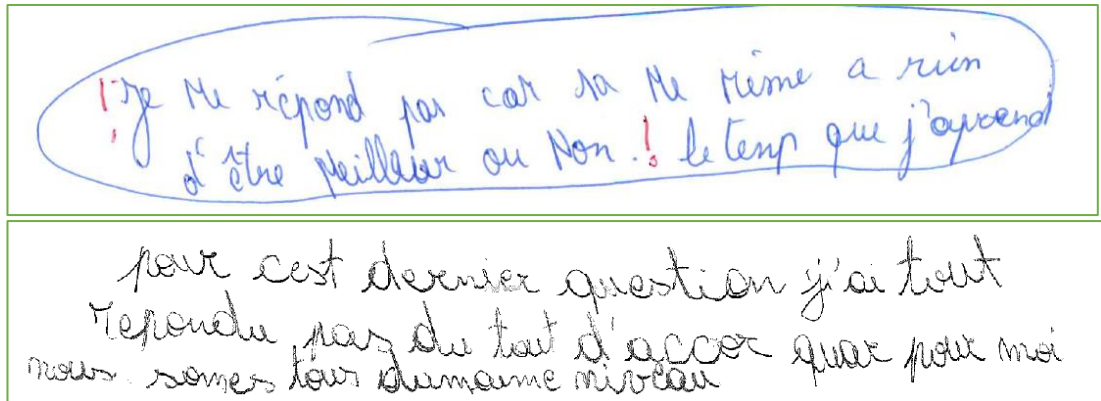 ! Je ne répond pas car sa ne mème a rien
d'être meilleur ou non. ! le temp que j'aprend
pour cest dernier question j'ai tout
repondu pas du tout d'accor quar pour moi
nous somes tous dumaime niveau